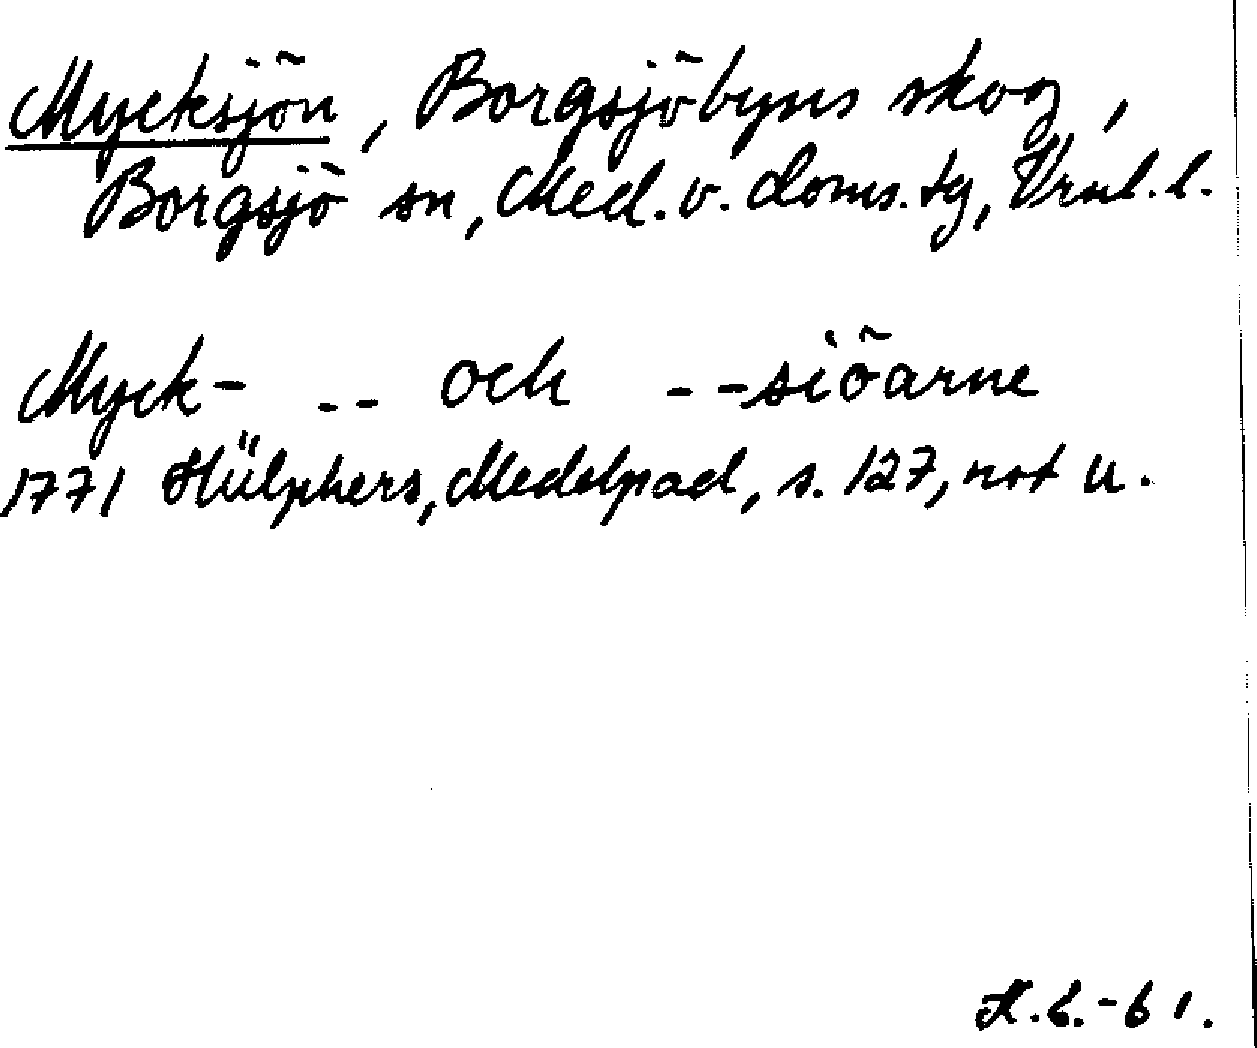 Mycksjön, Borgsjöbyns skog,
Borgsjö sn, Med. v. doms. tg, Vrnl. l.
Myck- -- och --siöarne
1771 Hülphers, Medelpad, s. 127, not u.
-61.